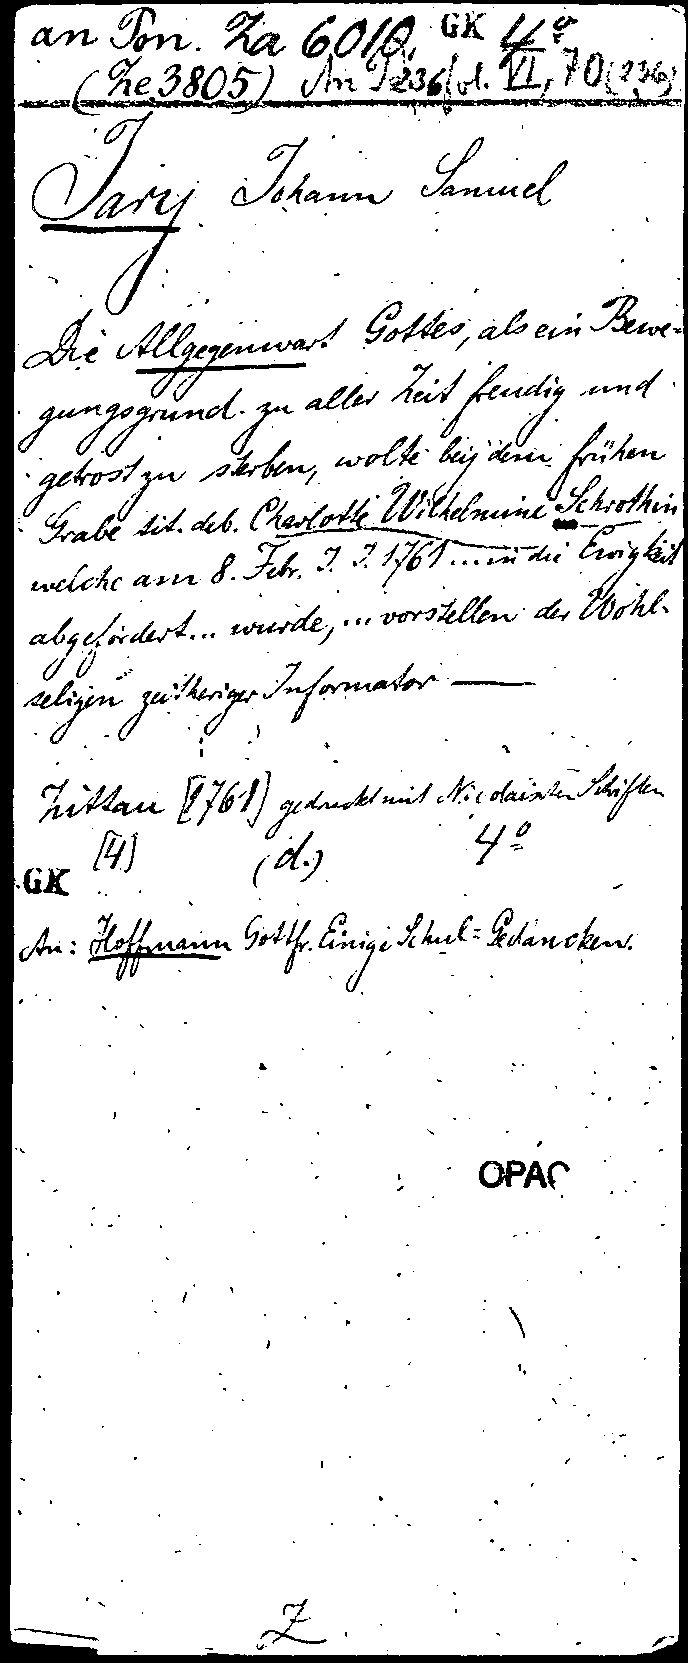 an Pon. Za 6010, GK 4º
(Ze 3805) An VI, 70 (236)
Jary Johann Samuel
Die Allgegenwart Gottes, als ein Bewe-
gungsgrund zu aller Zeit freudig und
getrost zu sterben, wolte beÿ dem frühen
Grabe tit. deb. Charlotte Wilhelmine Schrothin
welche am 8. Febr. J. J. 1761 ... in die Ewigkeit
abgefördert... wurde, ... vorstellen der Wohl-
seligen zeitheriger Informator —
Zittau [1761] gedruckt mit Nicolaischen Schriften
[4] (d.) 4º
GK
An: Hoffmann Gottfr. Einige Schul=Gedancken.
OPAC
Z